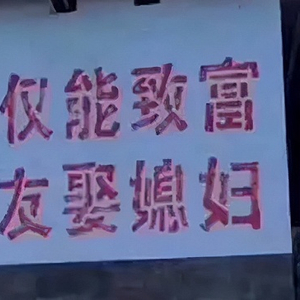 仅能致富
友娶媳妇